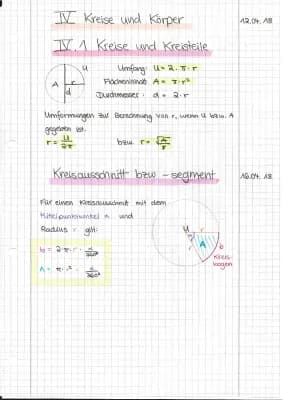 IV Kreise und Körper 12.04.18
IV.1 Kreise und Kreisteile
u
A r
d
Umfang: U = 2 · π · r
Flächeninhalt A = π · r²
Durchmesser: d = 2 · r
Umformungen zur Berechnung von r, wenn U bzw. A
gegeben ist.
r = U/2π bzw. r = √A/π
Kreisausschnitt bzw -segment 16.04.18
Für einen Kreisausschnitt mit dem
Mittelpunktswinkel α und
Radius r gilt:
b = 2 · π · r · α/360°
A = π · r² · α/360°
M r
A
b
Kreis-
bogen